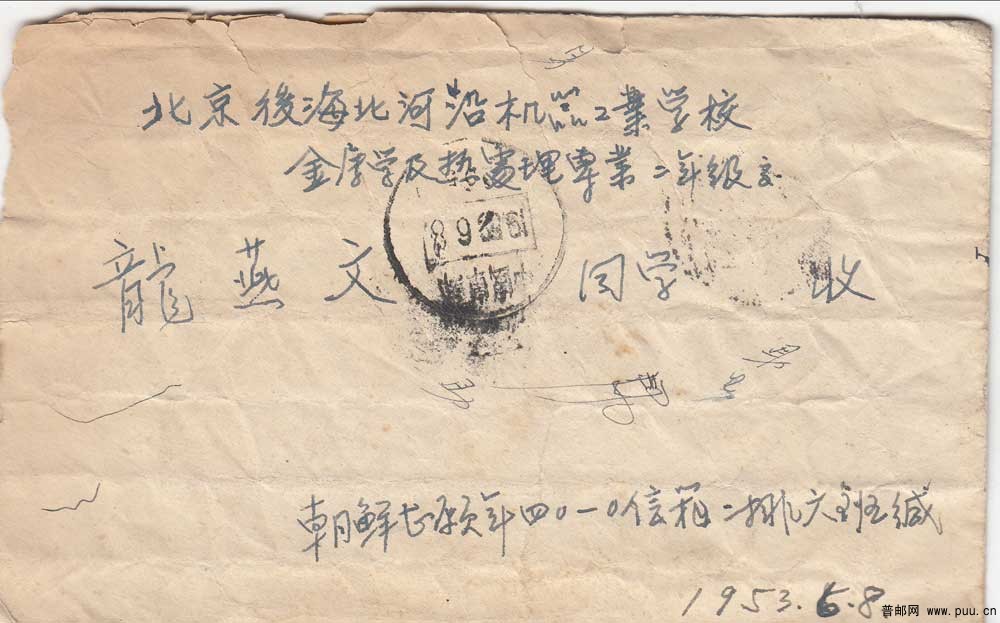 北京後海北河沿机器工業学校
金属学及热處理專業二年級交
龍燕文 同学 收
朝鮮志願軍四0一0信箱二排六班缄
1953.6.8.
普邮网 www.puu.cn